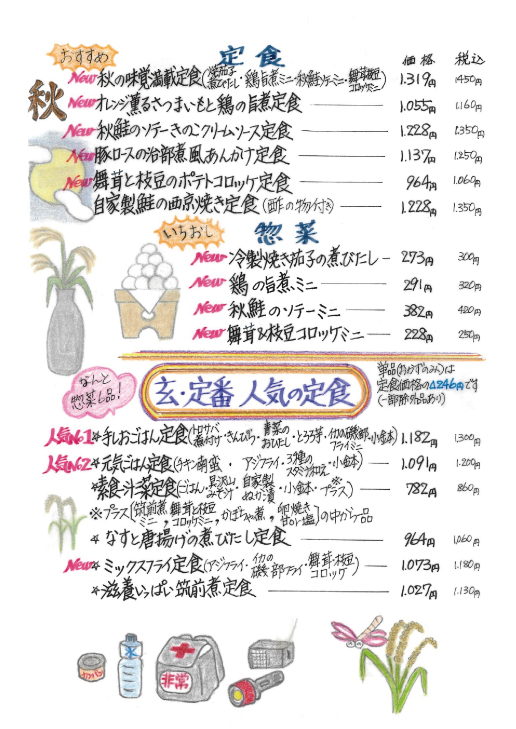 おすすめ
定食
価格 税込
秋
New 秋の味覚満載定食(焼茄子煮びたし・鶏旨煮ミニ・秋鮭ソテーミニ・舞茸枝豆コロッケミニ) 1.319円 1450円
New オレンジ薫るさつまいもと鶏の旨煮定食 1.055円 1.160円
New 秋鮭のソテーきのこクリームソース定食 1.228円 1.350円
New 豚ロースの治部煮風あんかけ定食 1.137円 1.250円
New 舞茸と枝豆のポテトコロッケ定食 964円 1.060円
自家製鮭の西京焼き定食(酢の物付き) 1.228円 1.350円
いちおし
惣菜
New 冷製焼き茄子の煮びたし 273円 300円
New 鶏の旨煮ミニ 291円 320円
New 秋鮭のソテーミニ 382円 420円
New 舞茸&枝豆コロッケミニ 228円 250円
なんと惣菜6品!
玄・定番 人気の定食
単品(おかずのみ)は
定食価格の△246円です
(一部除外品あり)
人気No.1 *手しおごはん定食(トロサバ煮付け・きんぴら・青菜のおひたし・とろろ芋・イカの磯部フライミニ・小鉢1本) 1.182円 1,300円
人気No.2 *元気ごはん定食(チキン南蛮・アジフライ・3種のスパサラ・小鉢1本) 1.091円 1.200円
*素食汁菜定食(ごはん・具沢山みそ汁・自家製ぬか漬・小鉢1本・※プラス) 782円 860円
※プラス[筑前煮ミニ, 舞茸と枝豆コロッケミニ, かぼちゃ煮, 卵焼き甘or塩]の中から1品
*なすと唐揚げの煮びたし定食 964円 1,060円
New *ミックスフライ定食(アジフライ・イカの磯部フライ・舞茸・枝豆コロッケ) 1.073円 1,180円
*滋養いっぱい筑前煮定食 1.027円 1.130円
水
非常